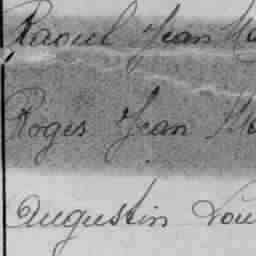 Raoul Jean Ma
Roger Jean Ma
Augustin Lou